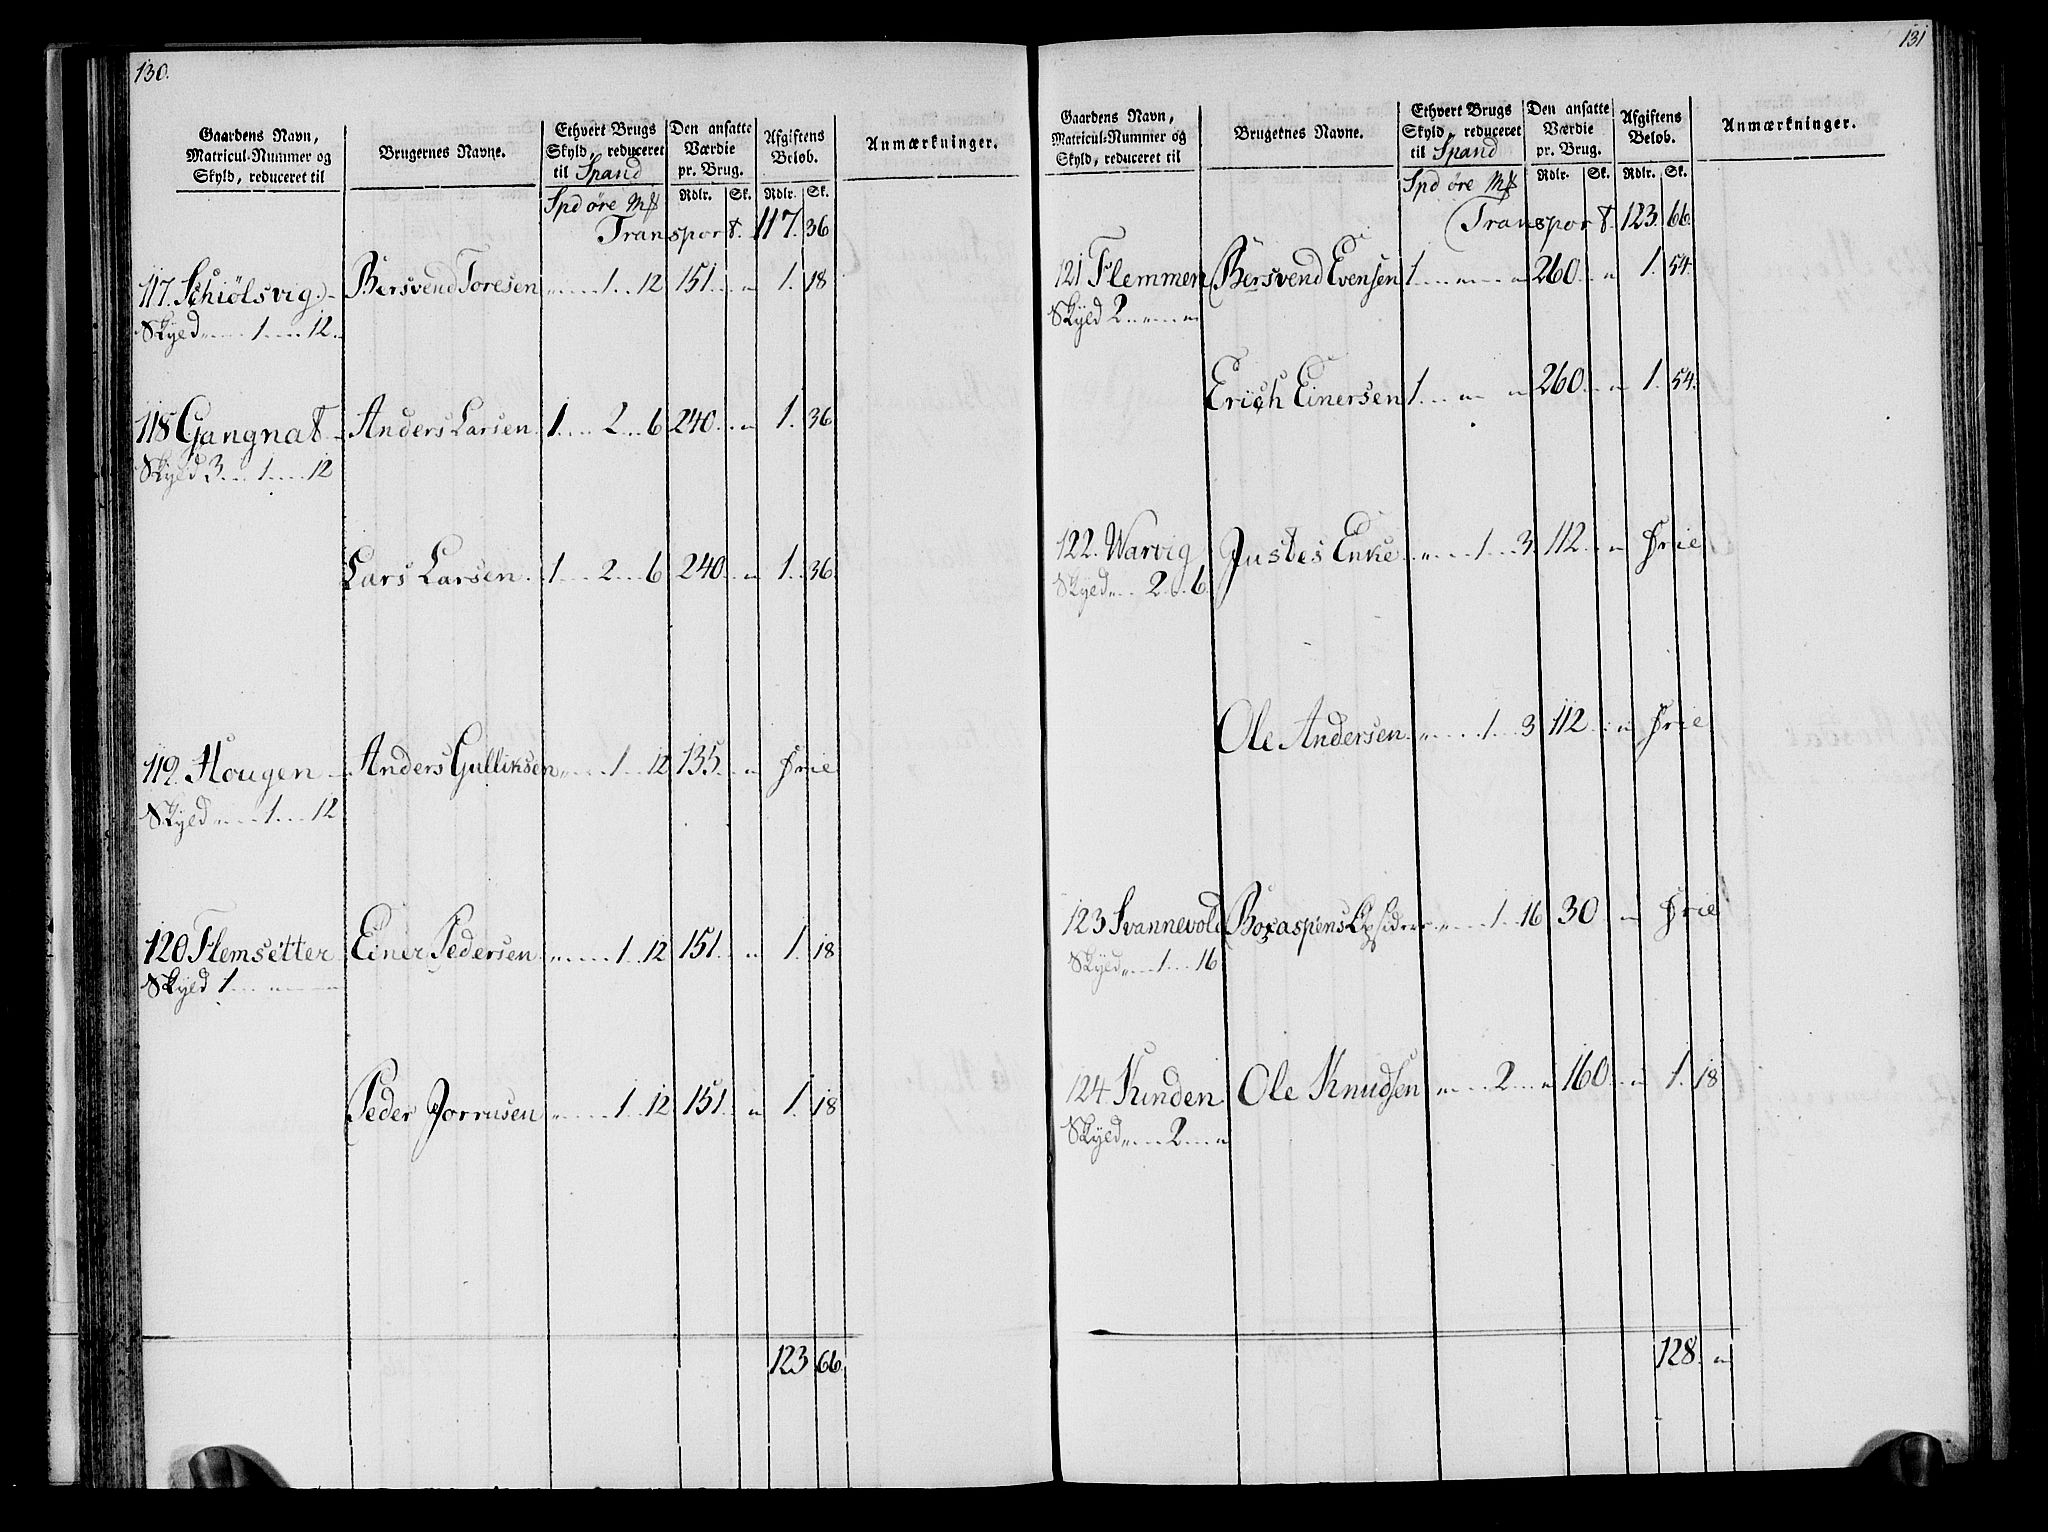 130.
Gaardens Navn, Matricul-Nummer og Skyld, reduceret til | Brugernes Navne. | Ethvert Brugs Skyld, reduceret til Spand | Den ansatte Værdie pr. Brug. | Afgiftens Beløb. | Anmærkninger.
Spd øre | Rdlr. | Sk. | Rdlr. | Sk.
Transport. 117. 36
117. Schiölsvig. Bersvend Toresen " 1 12 151 " 1. 18
Skyld " 1 12
118 Gangnat Anders Larsen 1 2 6 240 " 1. 36
Skyld 3 1 12
Lars Larsen 1 2 6 240 " 1. 36
119. Hougen Anders Gulliksen " 1 12 135 " Frie
Skyld " 1 12
120 Flemsetter Einer Pedersen " 1 12 151 " 1. 18
Skyld 1 " "
Peder Jorrusen " 1 12 151 " 1. 18
123 66
131
Gaardens Navn, Matricul-Nummer og Skyld, reduceret til | Brugernes Navne. | Ethvert Brugs Skyld, reduceret til Spand | Den ansatte Værdie pr. Brug. | Afgiftens Beløb. | Anmærkninger.
Spd øre | Rdlr. | Sk. | Rdlr. | Sk.
Transport. 123. 66.
121 Flemmen Bersvend Evensen 1 " " 260 " 1. 54.
Skyld 2 " "
Erich Einersen 1 " " 260 " 1. 54.
122. Warvig Justes Enke " 1 3 112 " Frie
Skyld " 2 6
Ole Andersen " 1 3 112 " Frie
123 Svannevold " 1 16 30 " Frie
Skyld " 1 16
124 Kunden Ole Knudsen " 2 " 160 " 1. 18
Skyld " 2 "
128. "